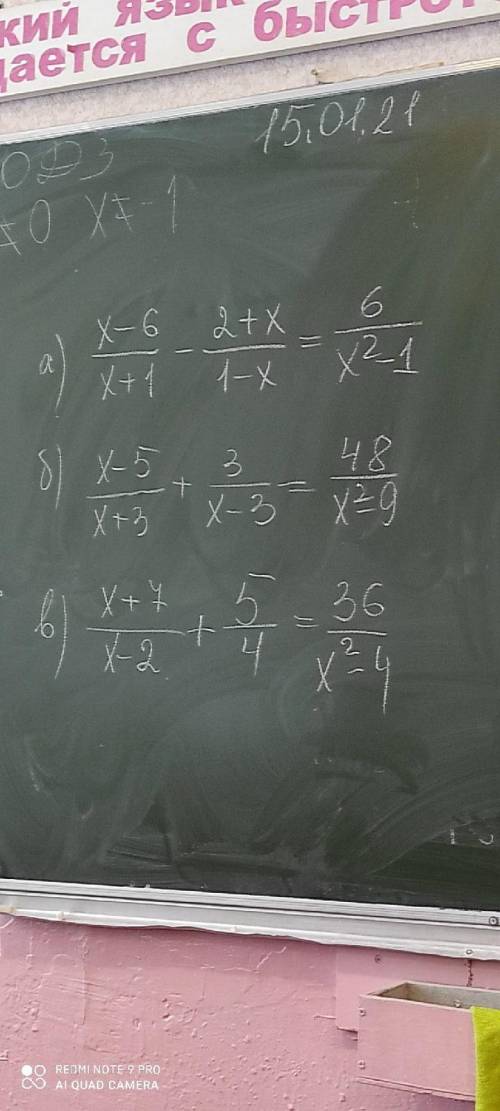 кий язык
дается с быстрот
15.01.21
ОДЗ
≠0 x≠-1
а) (x-6)/(x+1) - (2+x)/(1-x) = 6/(x²-1)
б) (x-5)/(x+3) + 3/(x-3) = 48/(x²-9)
в) (x+7)/(x-2) + 5/4 = 36/(x²-4)
REDMI NOTE 9 PRO
AI QUAD CAMERA